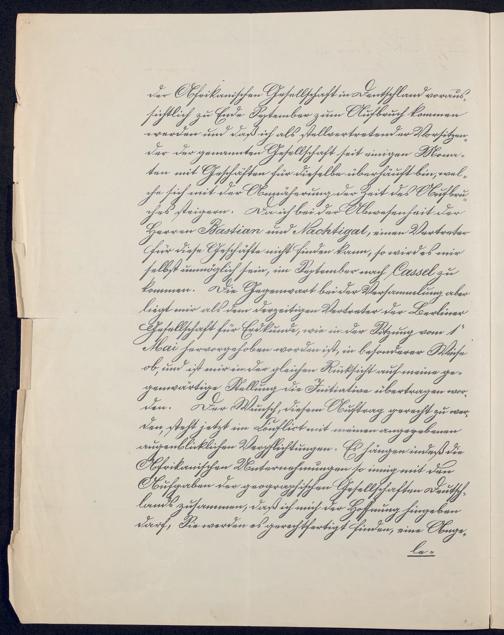 der Afrikanischen Gesellschaft in Deutschland voraus-
sichtlich zu Ende September zum Ausbruch kommen
werden und daß ich als stellvertretender Vorsitzen-
der der genannten Gesellschaft seit einigen Mona-
ten mit Geschäften für dieselbe überhäuft bin, wel-
che sich mit der Annäherung der Zeit des Aufbru-
ches steigern. Da ich bei der Abwesenheit der
Herren Bastian und Nachtigal, einen Vertreter
für diese Geschäfte nicht finden kann, so wird es mir
selbst unmöglich sein, im September nach Cassel zu
kommen. Die Gegenwart bei der Versammlung aber
liegt mir als dem derzeitigen Vertreter der Berliner
Gesellschaft für Erdkunde, wie in der Sitzung vom 1t
Mai hervorgehoben worden ist, in besonderer Weise
ob, und ist mir in der gleichen Rücksicht auf meine ge-
genwärtige Stellung die Initiative übertragen wor-
den. Der Wunsch, diesem Auftrag gerecht zu wer-
den, steht jetzt im Conflict mit meinen angegebenen
augenblicklichen Verpflichtungen. Es hängen indeß die
Afrikanischen Unternehmungen so innig mit den
Aufgaben der geographischen Gesellschaften Deutsch-
lands zusammen, daß ich mich der Hoffnung hingeben
darf, Sie werden es gerechtfertigt finden, eine Ange-
le-